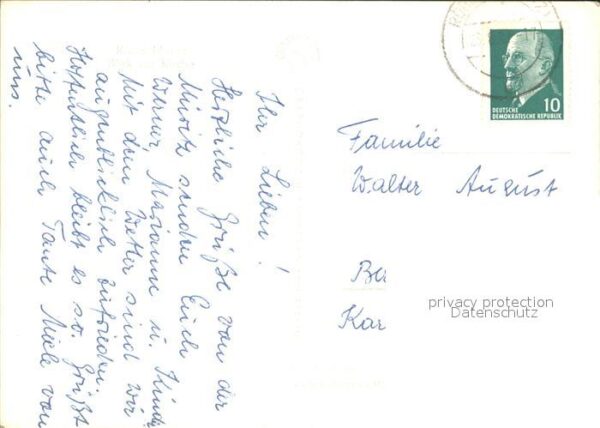 Ihr Lieben!
Herzliche Grüße von der
Müritz senden Euch
Werner Marianne u. Kinder
Mit dem Wetter sind wir
augenblicklich zufrieden.
Hoffentlich bleibt es so. Grüßt
bitte auch Tante Miele von
uns.
DEUTSCHE
DEMOKRATISCHE REPUBLIK
10
Familie
Walter August
Ber
Kar
privacy protection
Datenschutz